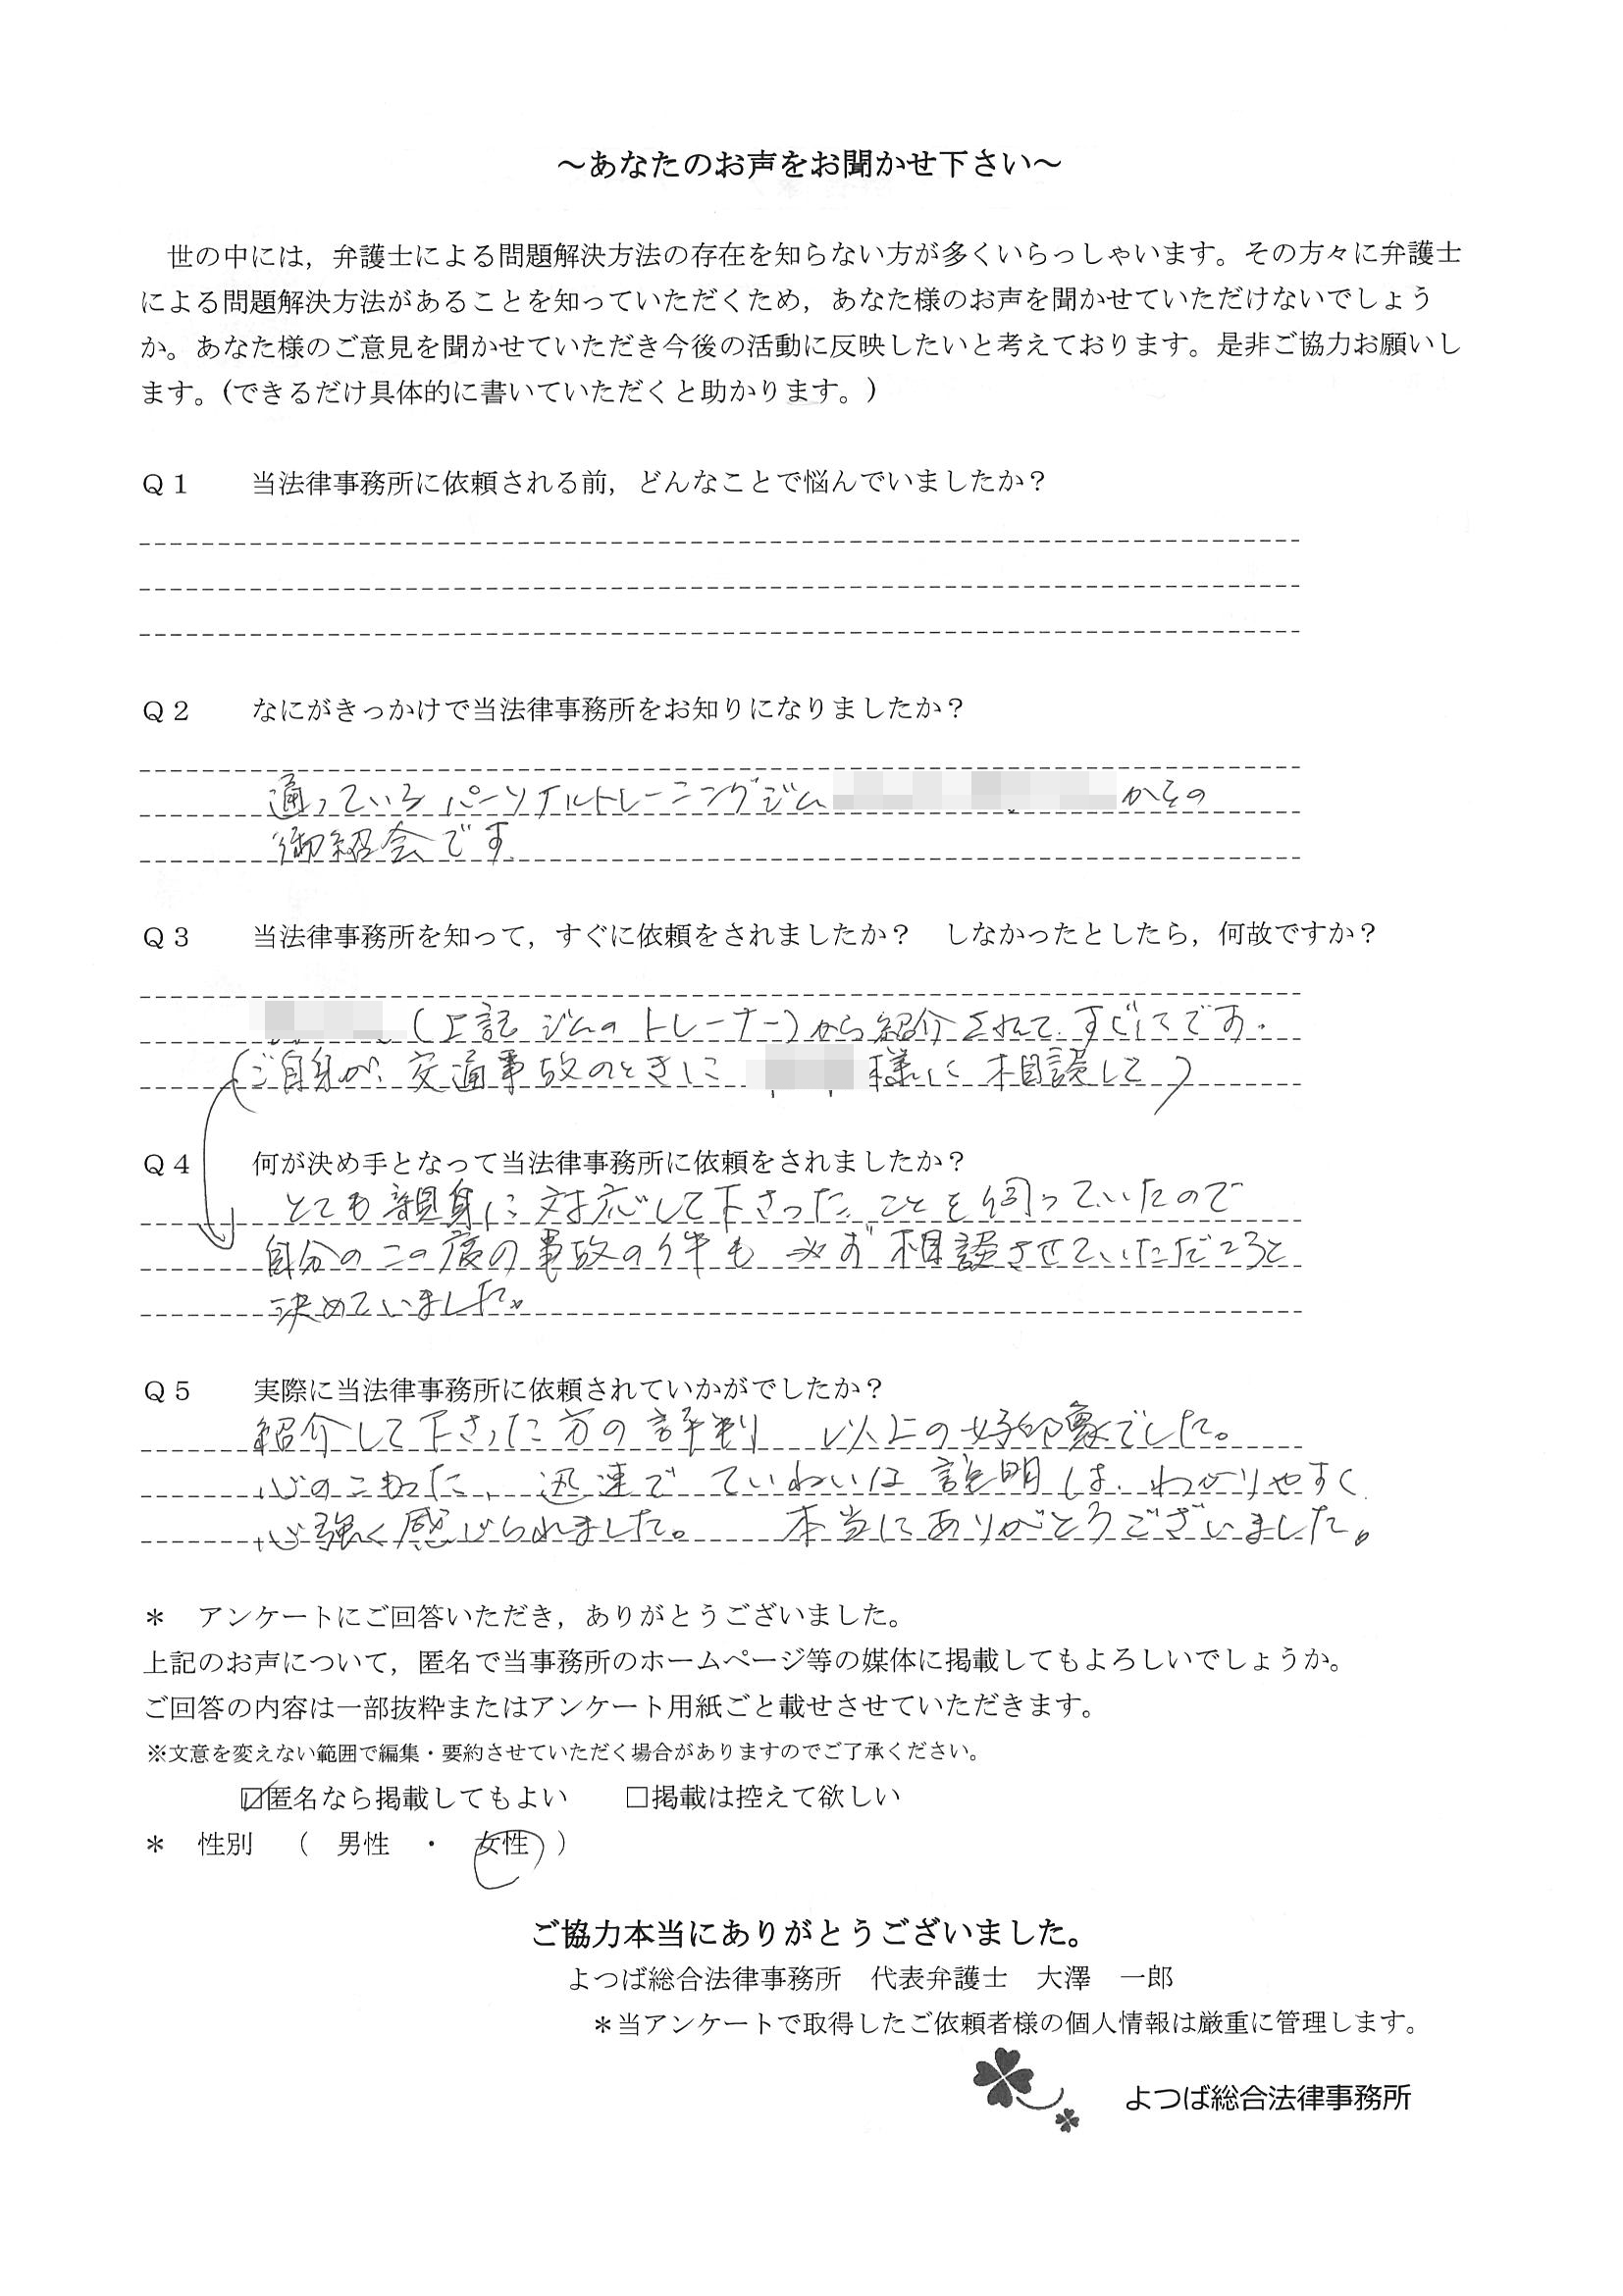 ～あなたのお声をお聞かせ下さい～
世の中には，弁護士による問題解決方法の存在を知らない方が多くいらっしゃいます。その方々に弁護士
による問題解決方法があることを知っていただくため，あなた様のお声を聞かせていただけないでしょう
か。あなた様のご意見を聞かせていただき今後の活動に反映したいと考えております。是非ご協力お願いし
ます。（できるだけ具体的に書いていただくと助かります。）
Ｑ１　当法律事務所に依頼される前，どんなことで悩んでいましたか？
Ｑ２　なにがきっかけで当法律事務所をお知りになりましたか？
通っているパーソナルトレーニングジム
御紹会です
Ｑ３　当法律事務所を知って，すぐに依頼をされましたか？　しなかったとしたら，何故ですか？
（上記 ジムの トレーナー）から紹介されて、すぐにです。
（ご自身が、交通事故のときに 様に 相談して）
Ｑ４　何が決め手となって当法律事務所に依頼をされましたか？
とても親身に対応して下さったことを伺っていたので
自分のこの度の事故の件も必ず相談させていただこうと
決めていました。
Ｑ５　実際に当法律事務所に依頼されていかがでしたか？
紹介して下さった方の評判 以上の好印象でした。
心のこもった、迅速で ていねいな 説明は、わかりやすく
心強く感じられました。 本当にありがとうございました。
＊　アンケートにご回答いただき，ありがとうございました。
上記のお声について，匿名で当事務所のホームページ等の媒体に掲載してもよろしいでしょうか。
ご回答の内容は一部抜粋またはアンケート用紙ごと載せさせていただきます。
※文意を変えない範囲で編集・要約させていただく場合がありますのでご了承ください。
☑匿名なら掲載してもよい　　□掲載は控えて欲しい
＊　性別　（　男性　・　女性　）
ご協力本当にありがとうございました。
よつば総合法律事務所　代表弁護士　大澤　一郎
＊当アンケートで取得したご依頼者様の個人情報は厳重に管理します。
よつば総合法律事務所